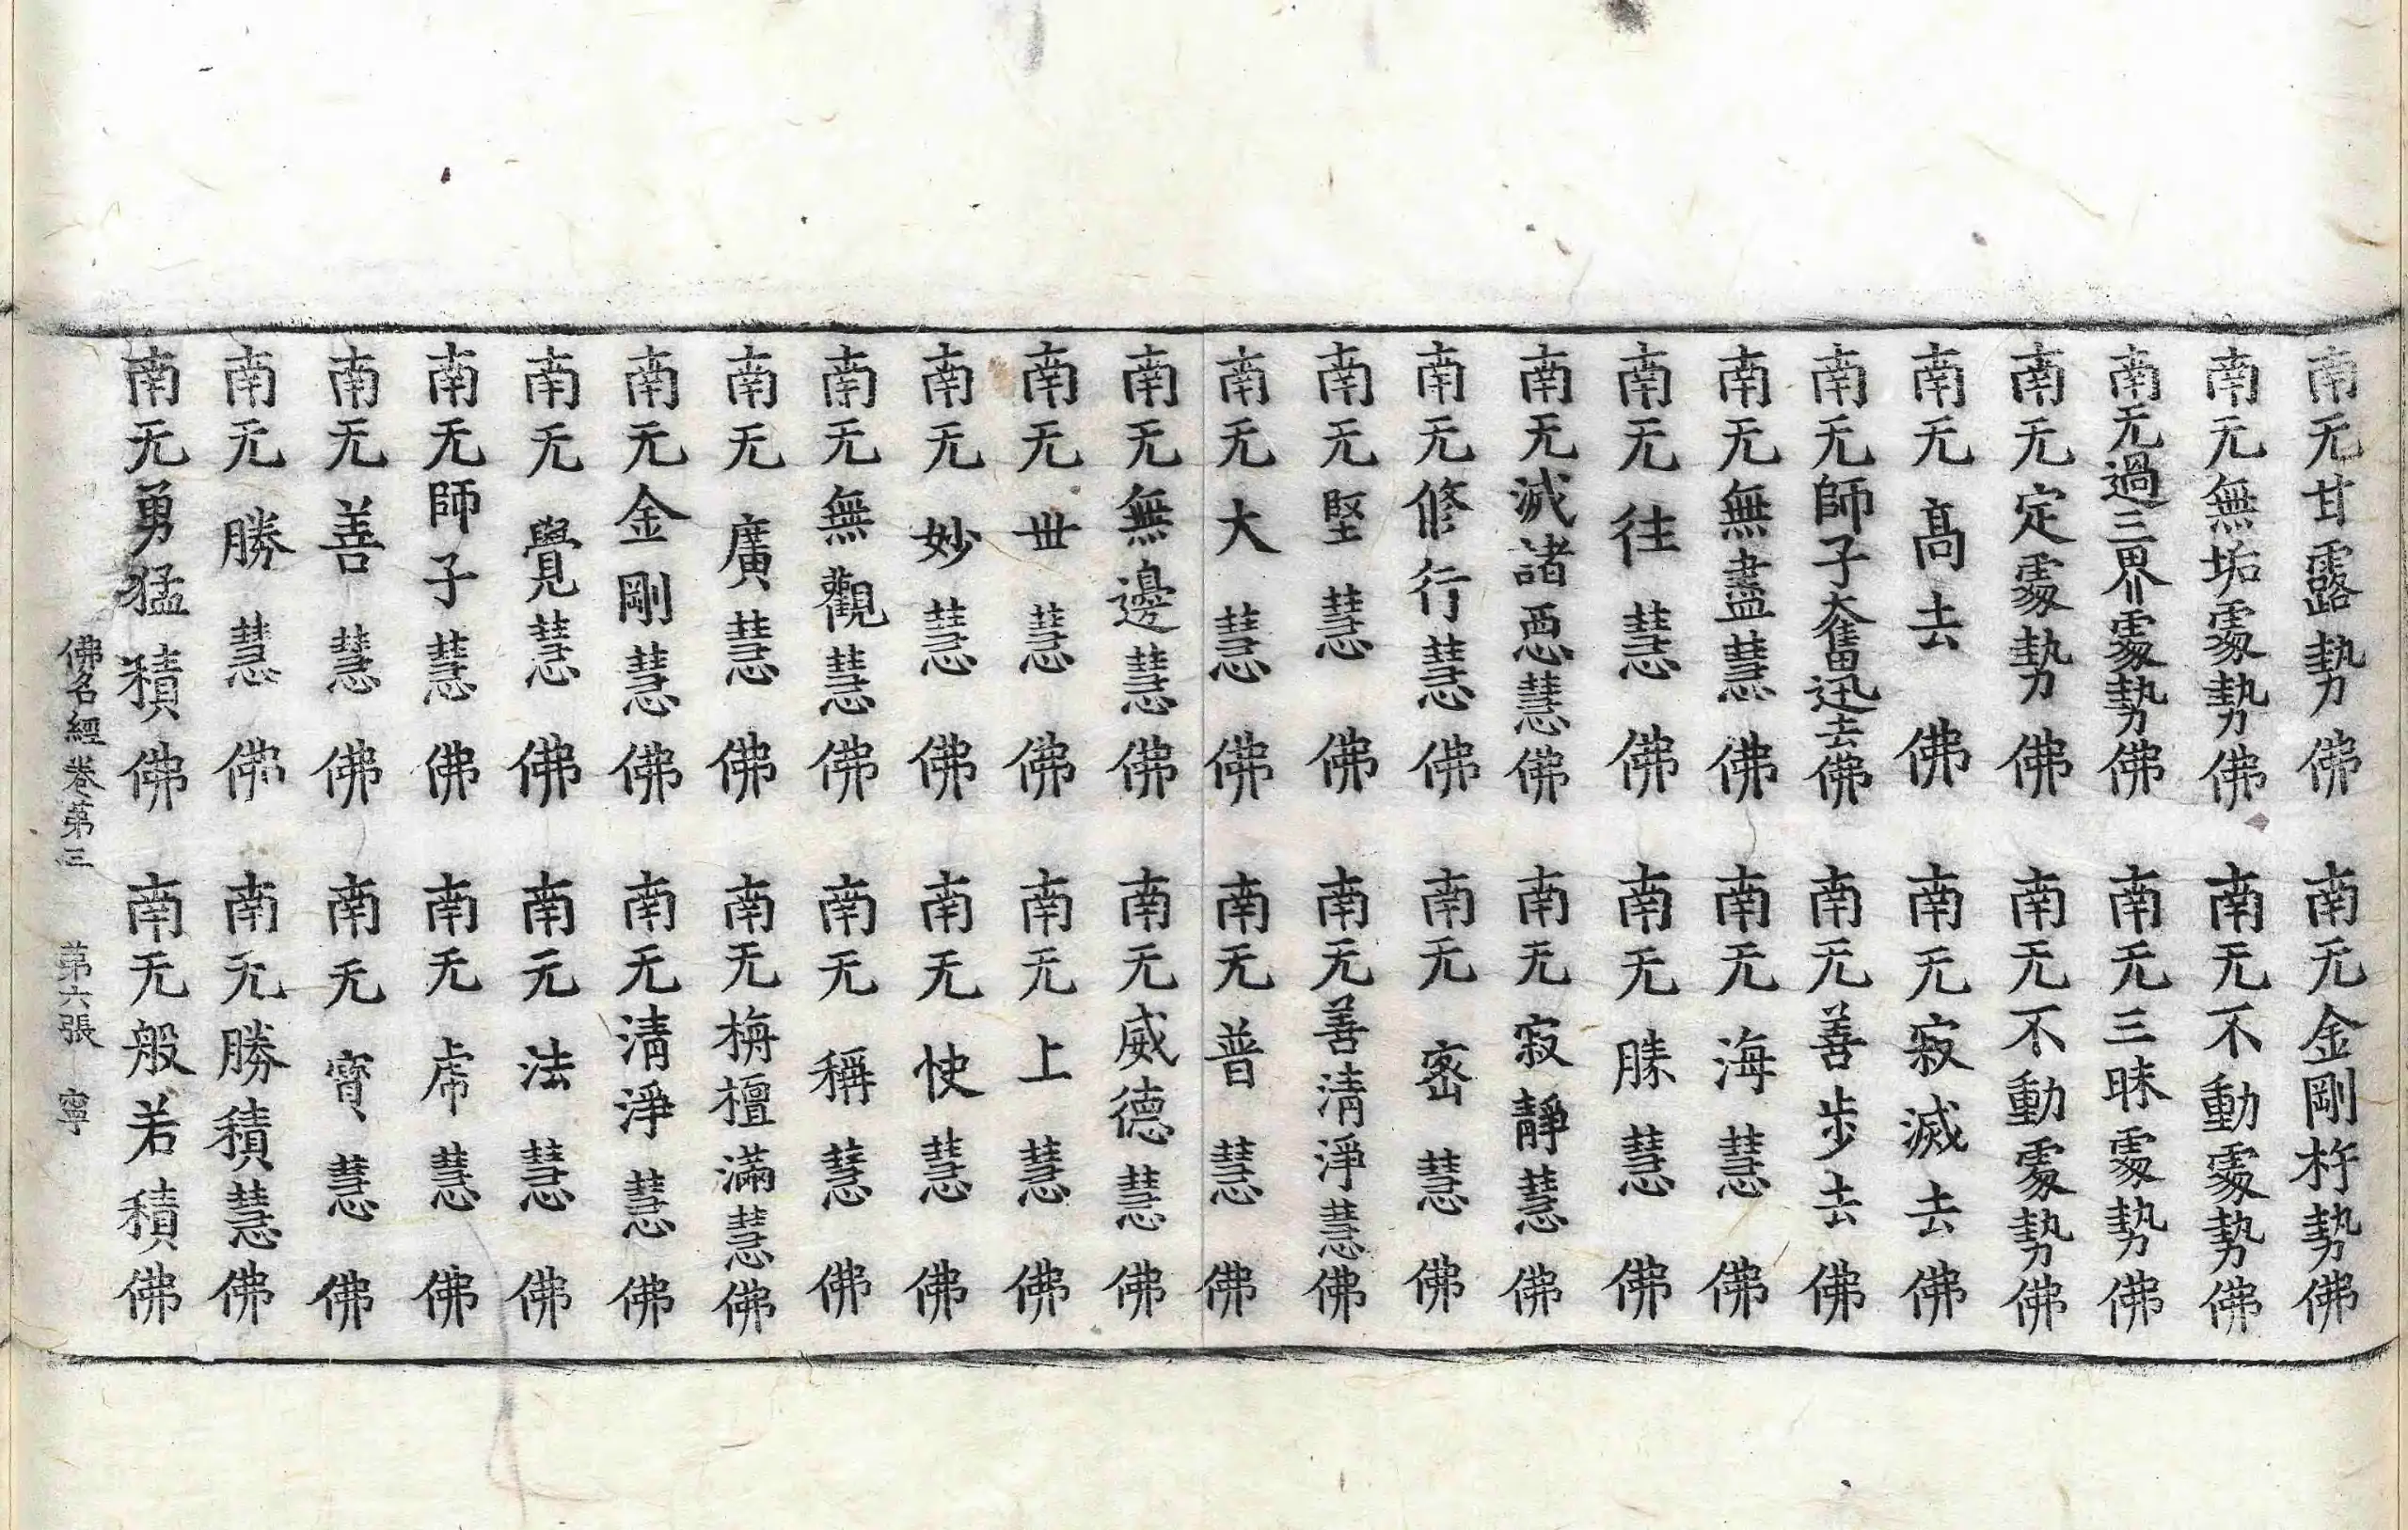 南无甘露勢佛　南无金剛杵勢佛
南无無垢䖏勢佛　南无不動䖏勢佛
南无過三界䖏勢佛　南无三昧䖏勢佛
南无定䖏勢佛　南无不動䖏勢佛
南无髙去佛　南无寂滅去佛
南无師子奮迅去佛　南无善步去佛
南无無盡慧佛　南无海慧佛
南无住慧佛　南无勝慧佛
南无滅諸惡慧佛　南无寂靜慧佛
南无修行慧佛　南无密慧佛
南无堅慧佛　南无善清淨慧佛
南无大慧佛　南无普慧佛
南无無邊慧佛　南无威德慧佛
南无世慧佛　南无上慧佛
南无妙慧佛　南无快慧佛
南无無觀慧佛　南无稱慧佛
南无廣慧佛　南无栴檀滿慧佛
南无金剛慧佛　南无清淨慧佛
南无覺慧佛　南无法慧佛
南无師子慧佛　南无虎慧佛
南无善慧佛　南无寶慧佛
南无勝慧佛　南无勝積慧佛
南无勇猛積佛　南无般若積佛
佛名經卷第三　第六張　寧